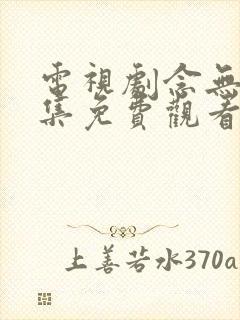 電視劇念無
集免費觀看
上善若水370a